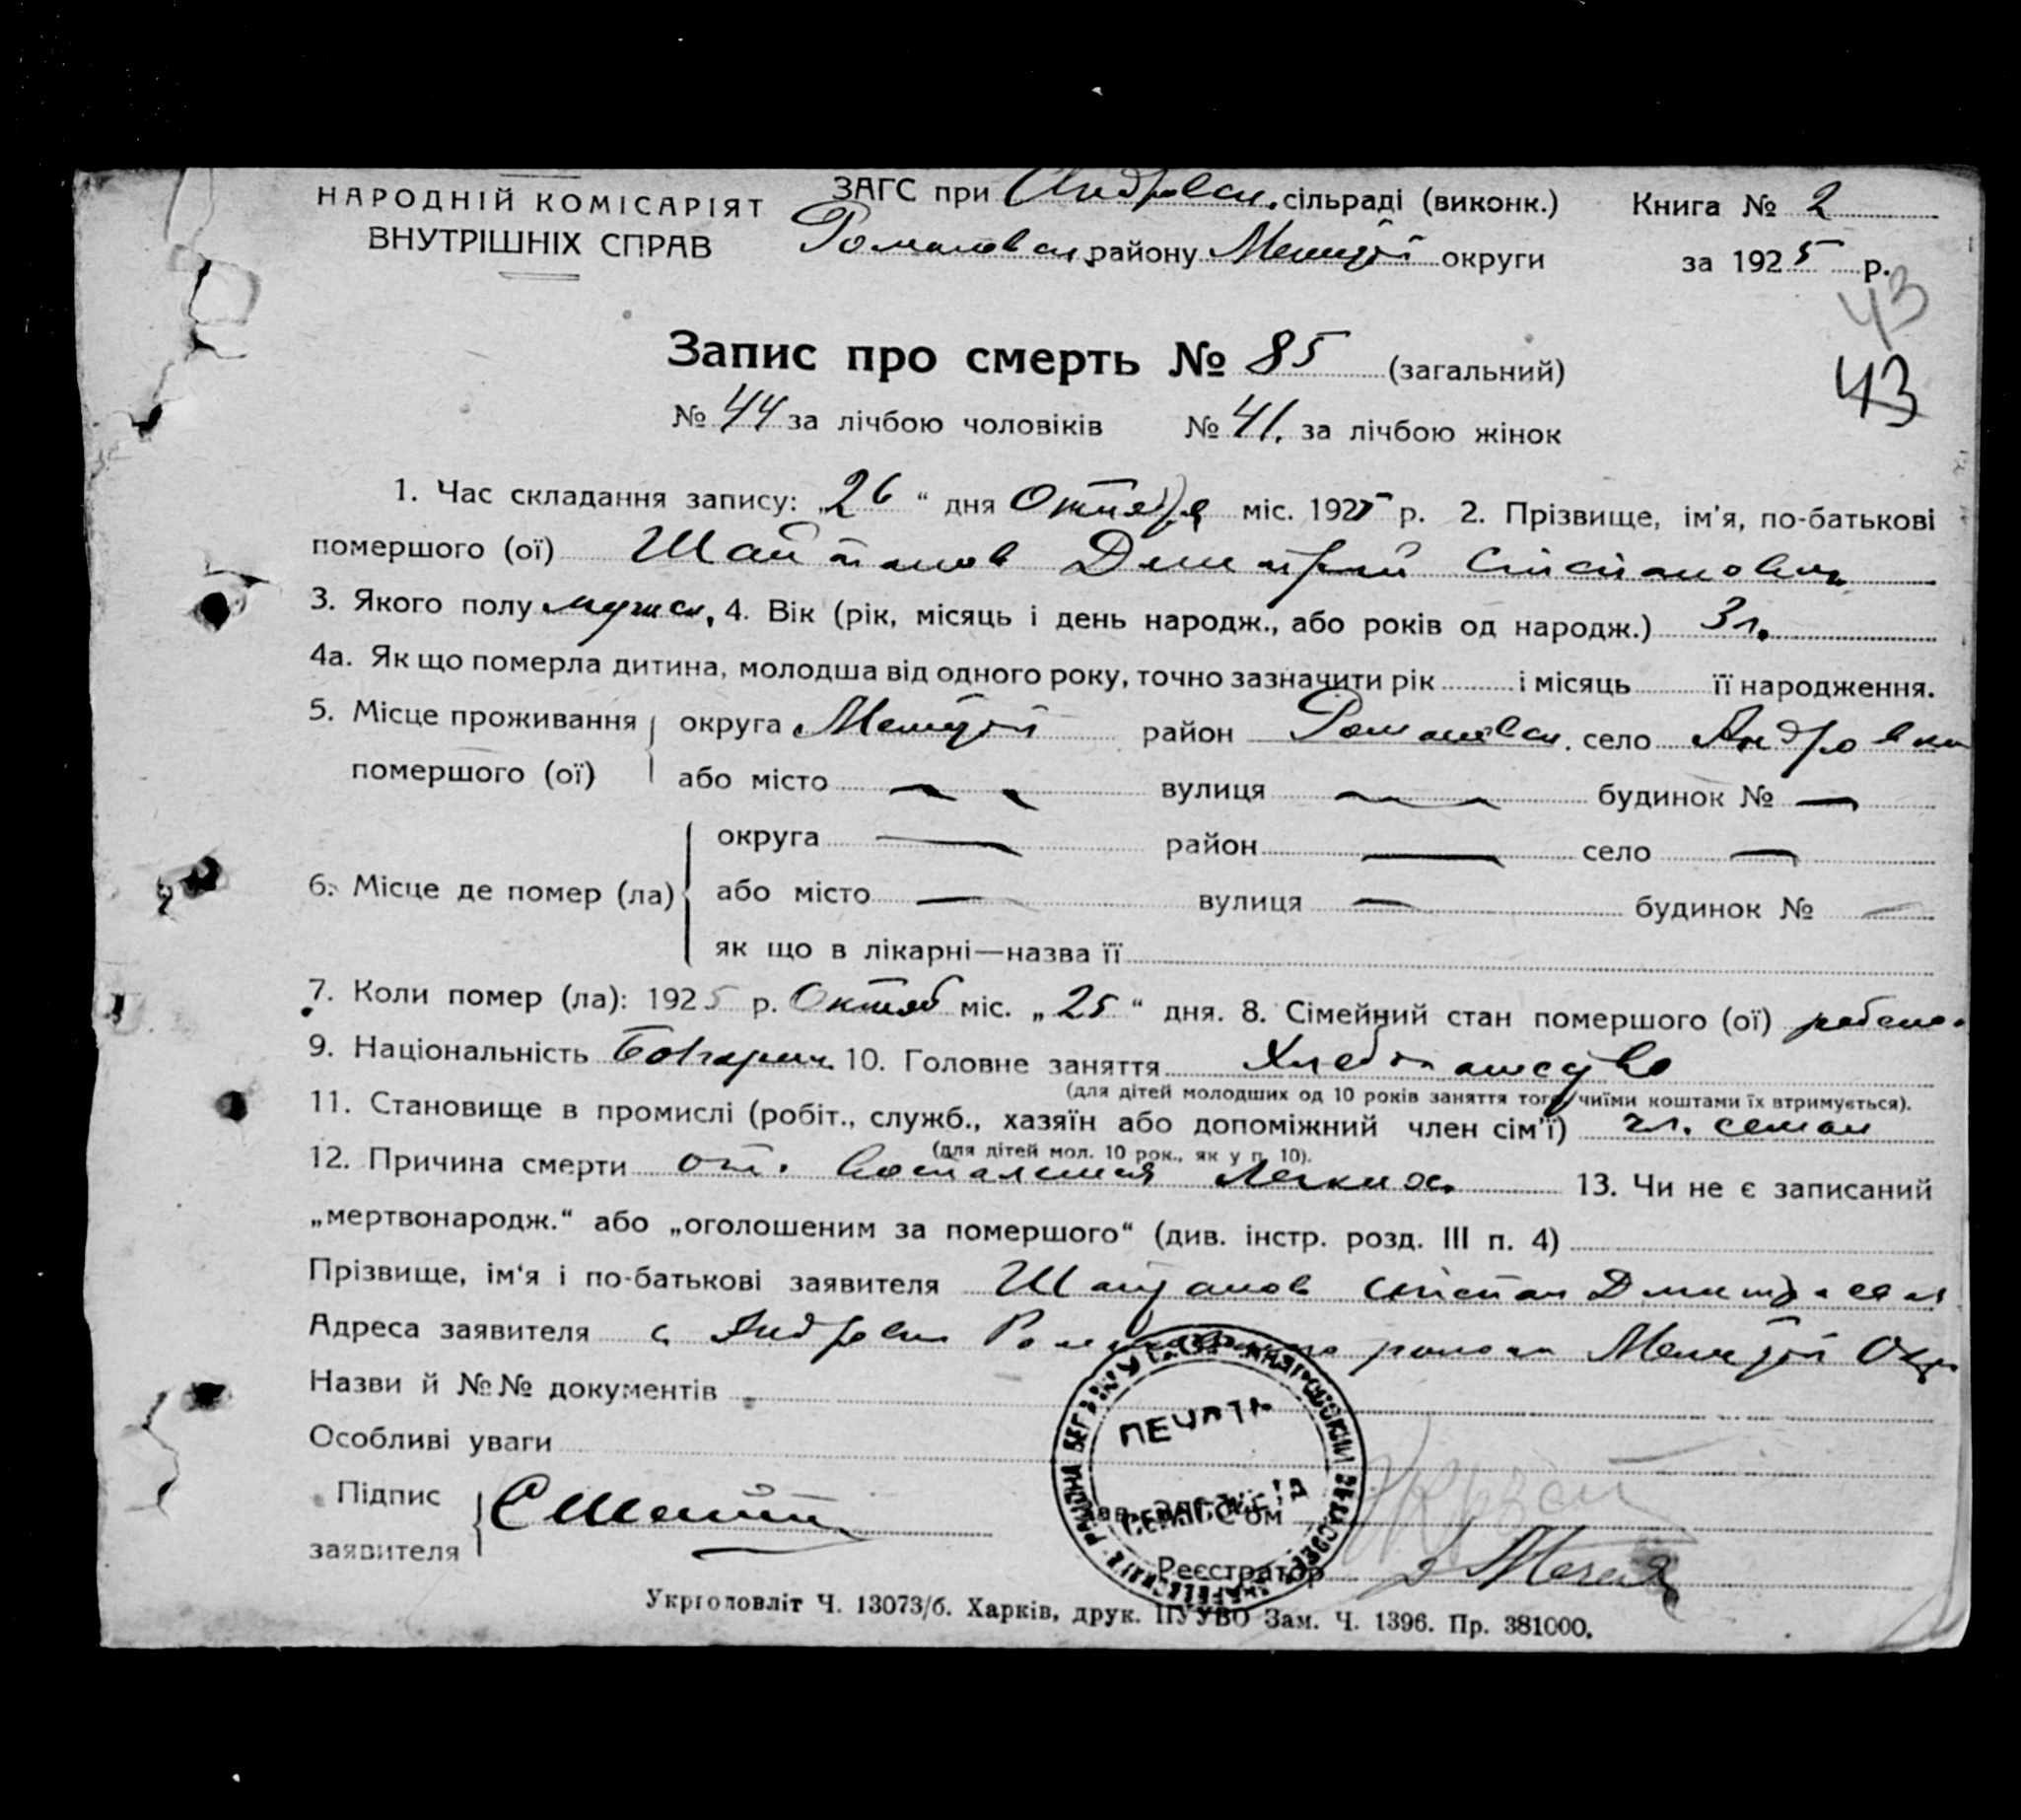 НАРОДНІЙ КОМІСАРІЯТ ВНУТРІШНІХ СПРАВ
ЗАГС при Андровск. сільраді (виконк.)
Романовск. району Мелитоп округи
Книга № 2
за 1925 р.
43
43
Запис про смерть № 85 (загальний)
№ 44 за лічбою чоловіків № 41. за лічбою жінок
1. Час складання запису: „26“ дня Октября міс. 1925 р. 2. Прізвище, ім'я, по-батькові
помершого (ої) Шайтанов Дмитрий Степанович
3. Якого полу мужск. 4. Вік (рік, місяць і день народж., або років од народж.) 3 г.
4а. Як що померла дитина, молодша від одного року, точно зазначити рік і місяць її народження.
5. Місце проживання помершого (ої) округа Мелитоп район Романовск. село Андровка
або місто — — вулиця — будинок № —
6. Місце де помер (ла) округа — район — село —
або місто — вулиця — будинок № —
як що в лікарні—назва її
7. Коли помер (ла): 1925 р. Октяб міс. „25“ дня. 8. Сімейний стан помершого (ої) ребено.
9. Національність Болгарин 10. Головне заняття Хлебопашество
(для дітей молодших од 10 років заняття того, чиїми коштами їх втримується).
11. Становище в промислі (робіт., служб., хазяїн або допоміжний член сім'ї) чл. семьи
(для дітей мол. 10 рок., як у п. 10).
12. Причина смерти от. Воспаления Легких. 13. Чи не є записаний
„мертвонародж.“ або „оголошеним за помершого“ (див. інстр. розд. III п. 4)
Прізвище, ім'я і по-батькові заявителя Шайтанов Степан
Адреса заявителя с Андровки района Мелитоп Окр
Назви й №№ документів
Особливі уваги
Підпис заявителя
ПЕЧАТЬ
Реєстратор
Укрголовліт Ч. 13073/б. Харків, друк. ПУУВО Зам. Ч. 1396. Пр. 381000.